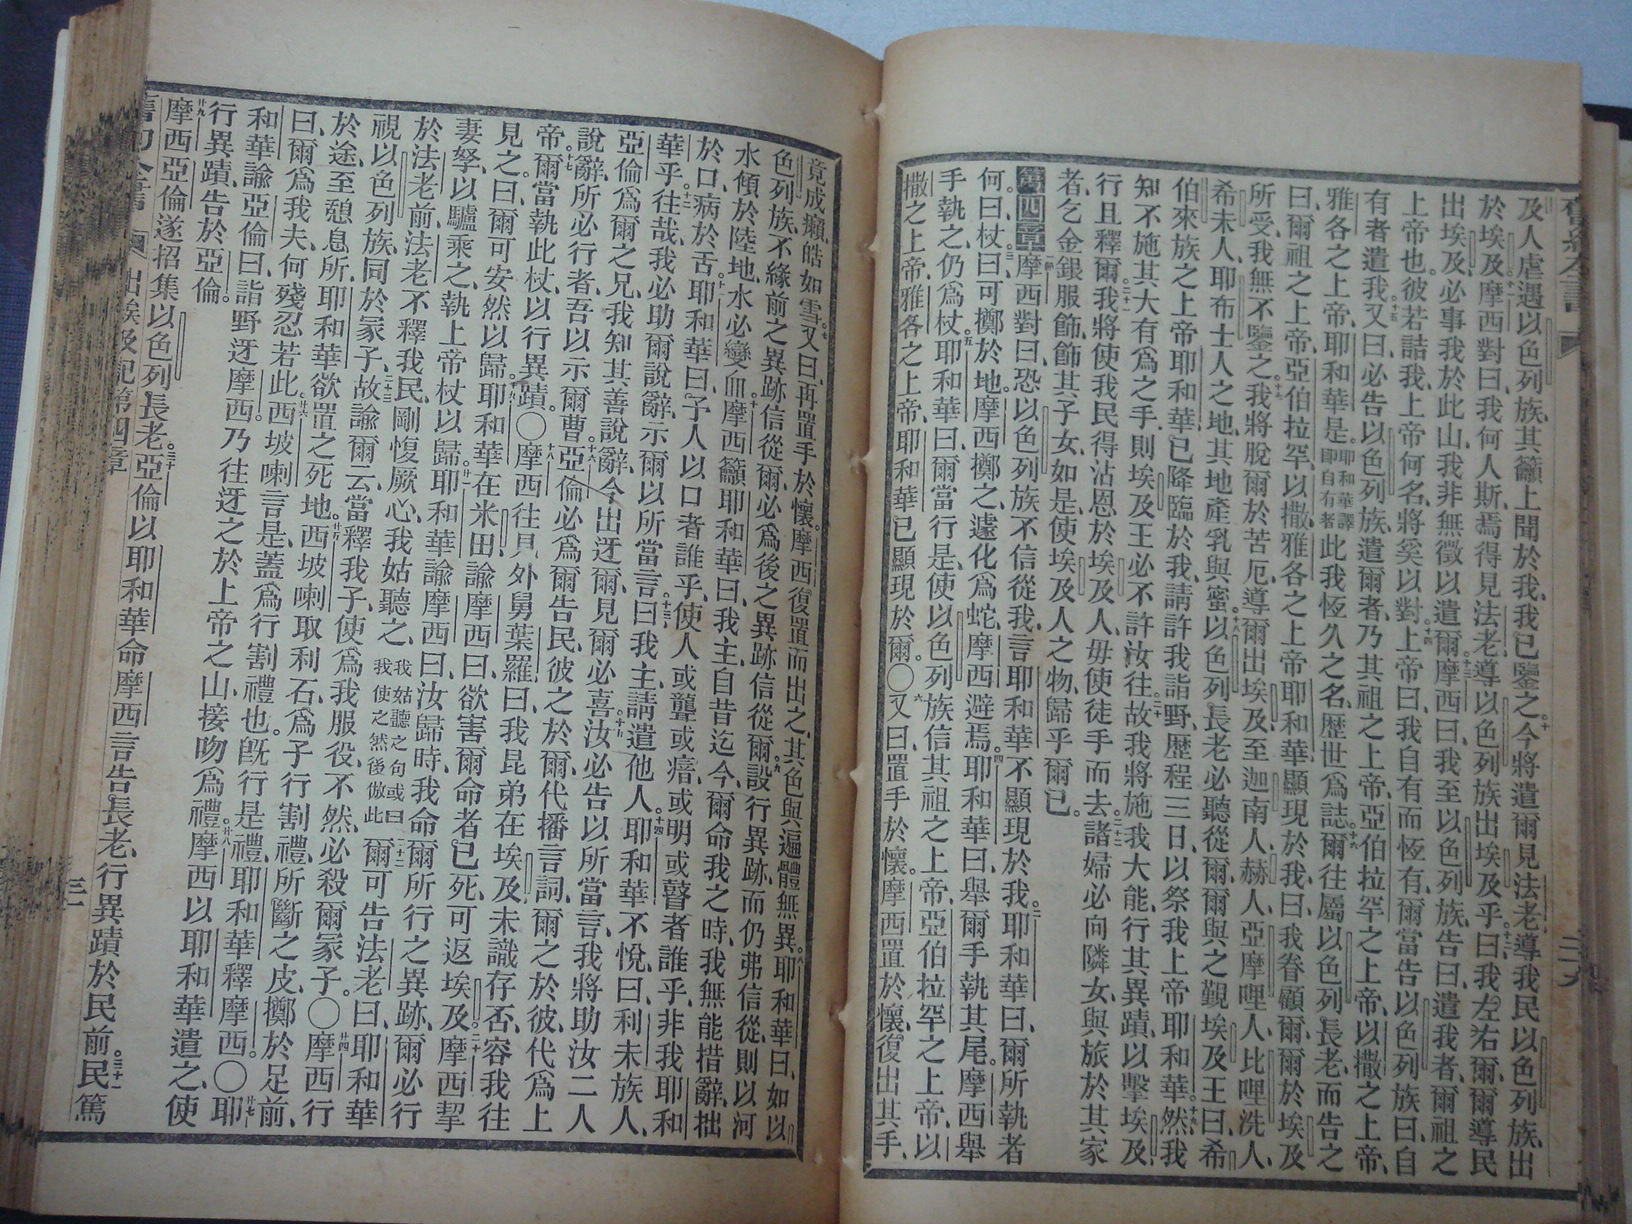 舊約全書
及人虐遇以色列族、其籲上聞於我、我已鑒之、十今將遣爾見法老、導我民以色列族、出
於埃及、十一摩西對曰、我何人斯、焉得見法老、導以色列族出埃及乎、十二曰、我左右爾、爾導民
出埃及、必事我於此山、我非無徵以遣爾、十三摩西曰、我至以色列族、告曰、遣我者、爾祖之
上帝也、彼若詰我、上帝何名、將奚以對、十四上帝曰、我自有而恆有、爾當告以色列族曰、自
有者遣我、十五又曰、必告以色列族、遣爾者、乃其祖之上帝、亞伯拉罕之上帝、以撒之上帝、
雅各之上帝、耶和華是、耶和華譯即自有者此我恆久之名、歷世爲誌、十六爾往屬以色列長老而告之
曰、爾祖之上帝、亞伯拉罕、以撒、雅各之上帝耶和華、顯現於我曰、我眷顧爾、爾於埃及
所受、我無不鑒之、十七我將脫爾於苦厄、導爾出埃及、至迦南人、赫人、亞摩哩人、比哩洗人、
希未人、耶布士人之地、其地產乳與蜜、十八以色列長老必聽從爾、爾與之覲埃及王曰、希
伯來族之上帝耶和華、已降臨於我、請許我詣野、歷程三日、以祭我上帝耶和華、十九然我
知不施其大有爲之手、則埃及王必不許汝往、二十故我將施我大能、行其異蹟、以擊埃及、
行且釋爾、二十一我將使我民得沾恩於埃及人、毋使徒手而去、二十二諸婦必向隣女、與旅於其家
者、乞金銀服飾、飾其子女、如是使埃及人之物、歸乎爾已。
第四章一摩西對曰、恐以色列族不信從我、言耶和華不顯現於我、二耶和華曰、爾所執者
何、曰杖、三曰、可擲於地、摩西擲之、遽化爲蛇、摩西避焉、四耶和華曰、舉爾手執其尾、摩西舉
手執之、仍爲杖、五耶和華曰、爾當行是、使以色列族信其祖之上帝、亞伯拉罕之上帝、以
撒之上帝、雅各之上帝、耶和華已顯現於爾。〇六又曰、置手於懷、摩西置於懷、復出其手、
竟成癩、皓如雪、七又曰、再置手於懷、摩西復置而出之、其色與遍體無異、八耶和華曰、如以
色列族、不緣前之異跡信從爾、必爲後之異跡信從爾、九設行異跡、而仍弗信從、則以河
水傾於陸地、水必變血、十摩西籲耶和華曰、我主、自昔迄今、爾命我之時、我無能措辭、拙
於口、病於舌、十一耶和華曰、予人以口者誰乎、使人或聾或瘖、或明或瞽者、誰乎、非我耶和
華乎、十二往哉、我必助爾說辭、示爾以所當言、十三曰、我主、請遣他人、十四耶和華不悅曰、利未族人、
亞倫爲爾之兄、我知其善說辭、今出迓爾、見爾必喜、十五汝必告以所當言、我將助汝二人
說辭、所必行者、吾以示爾曹、十六亞倫必爲爾告民、彼之於爾、代播言詞、爾之於彼、代爲上
帝、十七爾當執此杖、以行異蹟、〇十八摩西往見外舅葉羅曰、我昆弟在埃及、未識存否、容我往
見之、曰、爾可安然以歸、十九耶和華在米田、諭摩西曰、欲害爾命者已死、可返埃及、二十摩西挈
妻孥、以驢乘之、執上帝杖以歸、廿一耶和華諭摩西曰、汝歸時、我命爾所行之異跡、爾必行
於法老前、法老不釋我民、剛愎厥心、我姑聽之、我姑聽之句或曰我使之然後倣此二十二爾可告法老曰、耶和華
視以色列族、同於冢子、二十三故諭爾云、當釋我子、使爲我服役、不然、必殺爾冢子。〇廿四摩西行
於途、至憩息所、耶和華欲置之死地、廿五西坡喇取利石、爲子行割禮、所斷之皮、擲於足前、
曰、爾爲我夫、何殘忍若此、廿六西坡喇言是、蓋爲行割禮也、旣行是禮、耶和華釋摩西。〇廿七耶
和華諭亞倫曰、詣野迓摩西、乃往迓之於上帝之山、接吻爲禮、廿八摩西以耶和華遣之、使
行異蹟、告於亞倫。
廿九摩西亞倫遂招集以色列長老、三十亞倫以耶和華命摩西言告長老、行異蹟於民前、三十一民篤
舊約全書 出埃及記第四章